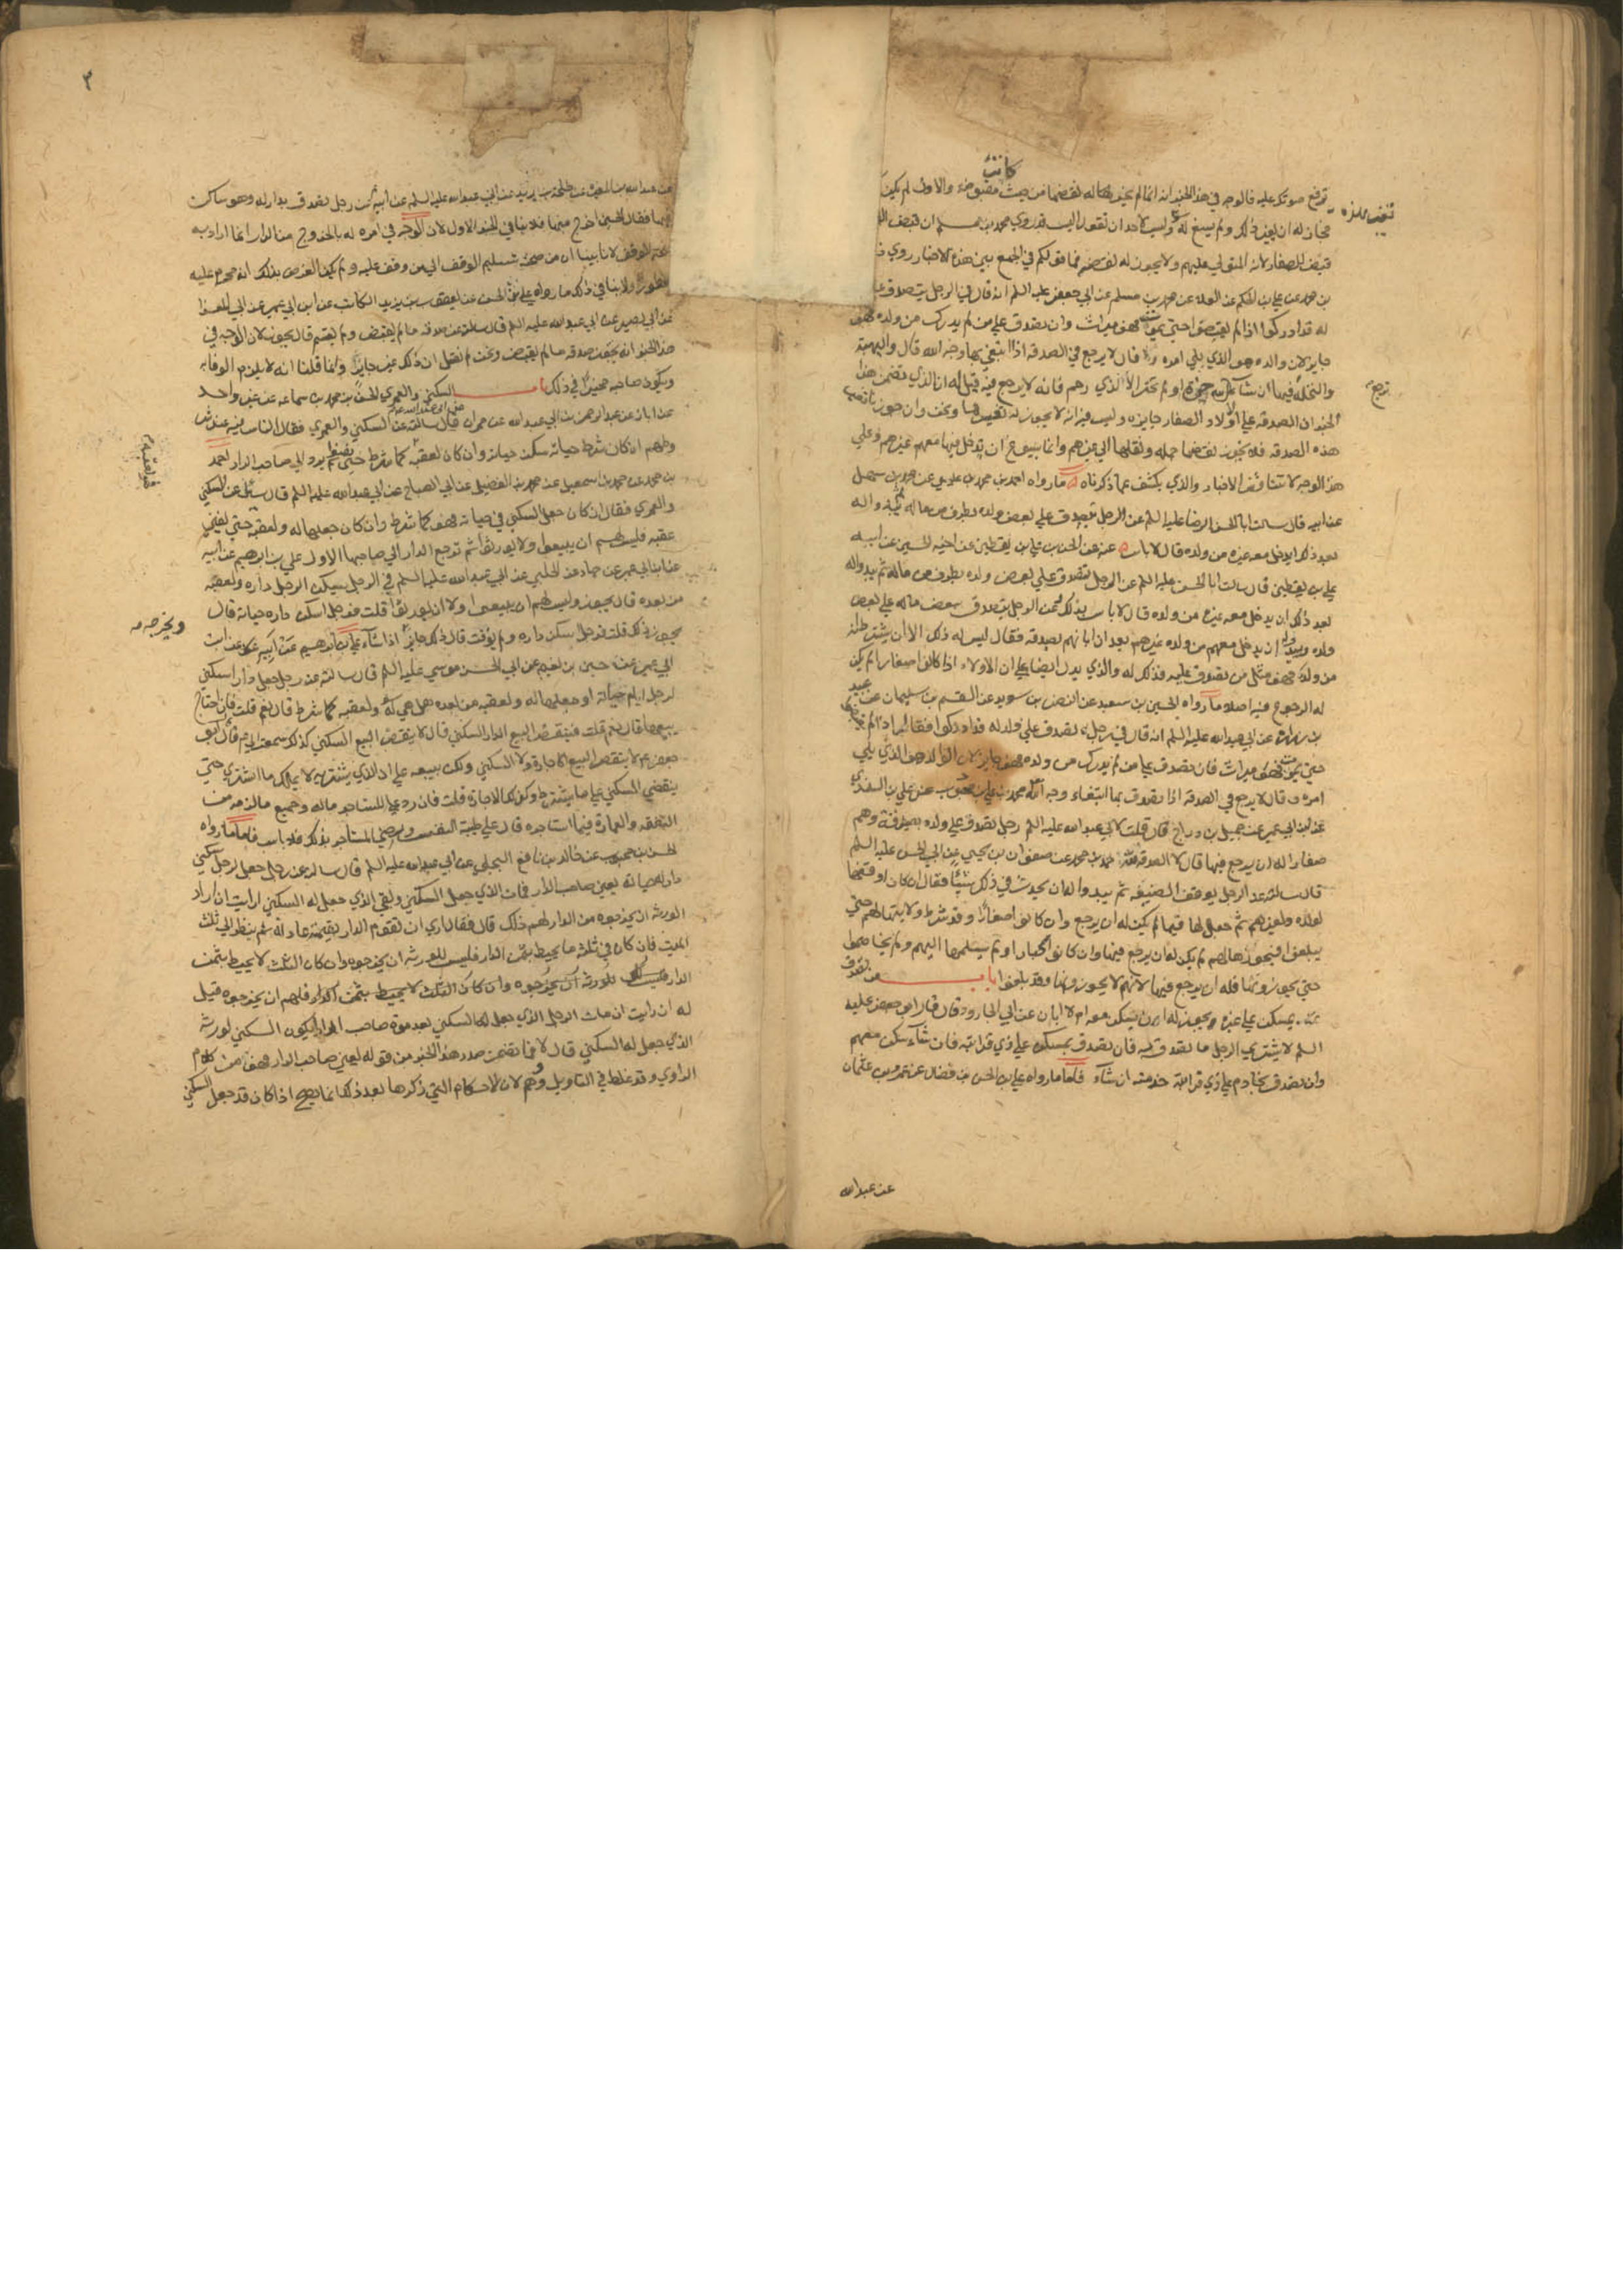 كانت
توقع صوتك عليه فالوجه في هذا الخبر انه انما لم يجز له نقضها من حيث مقبوضة والاول لم يكن
فجاز له ان يغير ذلك ولم يسغ له وليس لاحد ان تقول اليس قد روي محمد بن مسلم ان قبض الوالد
قبض للصغار لانه المتولي عليهم ولا يجوز له نقضه فما قولكم في الجمع بين هذه الاخبار روي ذ
بن محمد عن علي بن الحكم عن العلا عن محمد بن مسلم عن ابي جعفر عليه السلم انه قال في الرجل يتصدق علي
له قد ادركوا اذا لم يقبضوا حتي يموت فهو ميراث وان تصدق علي من لم يدرك من ولده فهو
جايز لان والده هو الذي يلي امره وقال لا يرجع في الصدقة اذا ابتغي بها وجه الله قال والهبة
والنحلة فيها ان شاء حيزت او لم تحز الا لذي رحم فانه لا يرجع فيه قيل له ان الذي تضمن هذا
الخبر ان الصدقة علي الاولاد الصغار جايزه وليس فيه انه لا يجوز له تغييرها ونحن وان جوزنا
هذه الصدقة فلا يجوز نقضها جملة ونقلها الي غيرهم وانما يسوغ ان يدخل فيها معهم غيرهم وعلي
هذا الوجه لا تتنافي الاخبار والذي يكشف عما ذكرناه ما رواه احمد بن محمد بن عيسي عن محمد بن سهل
عن ابيه قال سالت ابا الحسن الرضا عليه السلم عن الرجل يتصدق علي بعض ولده بطرف من ماله ثم يبدو اله
بعد ذلك ان يدخل معه غيره من ولده قال لا باس عنه عن الحسن بن علي بن يقطين عن اخيه الحسين عن ابيه
علي بن يقطين قال سالت ابا الحسن عليه السلم عن الرجل يتصدق علي بعض ولده بطرف من ماله ثم يبدو اله
بعد ذلك ان يدخل معه غيره من ولده قال لا باس بذلك وعن الرجل يتصدق ببعض ماله علي بعض
ولده ويبينه له ان يدخل معهم من ولده غيرهم بعد ان ابانهم بصدقه فقال ليس له ذلك الا ان يشترط انه
من ولد فهو مثل من تصدق عليه فذلك له والذي يدل ايضا علي ان الاولاد اذا كانوا صغارا لم يكن
له الرجوع فيه اصلا ما رواه الحسين بن سعيد عن النضر بن سويد عن القسم بن سليمان عن عبيد
بن زرارة عن ابي عبد الله عليه السلم انه قال في رجل تصدق علي ولد له قد ادركوا فقال اذا لم يقبضوا
حتي يموت فهو ميراث فان تصدق علي من لم يدرك من ولده فهو جايز لان الوالد هو الذي يلي
امره وقال لا يرجع في الصدقة اذا تصدق بها ابتغاء وجه الله محمد بن علي بن محبوب عن علي بن السندي
عن ابن ابي عمير عن جميل بن دراج قال قلت لابي عبد الله عليه السلم رجل تصدق علي ولده بصدقة وهم
صغار اله ان يرجع فيها قال لا الصدقة لله محمد بن محمد عن صفوان بن يحيي عن ابي الحسن عليه السلم
قال سالته عن الرجل يوقف الضيعة ثم يبدو اله ان يحدث في ذلك شيئا فقال ان كان اوقفها
لولده ولغيرهم ثم جعل لها قيما لم يكن له ان يرجع وان كانوا صغارا وقد شرط ولايتها لهم حتي
يبلغوا فيحوزها لهم لم يكن له ان يرجع فيها وان كانوا كبارا ولم يسلمها اليهم ولم يخاصموا
حتي يحوزونها فله ان يرجع فيها لانهم لا يحوزونها وقد بلغوا باب من تصدق
بمسكن علي غيره ويجوز له ان يسكن معه ام لا ابان عن ابي الجارود قال قال ابو جعفر عليه
السلم لا يشتري الرجل ما تصدق به فان تصدق بمسكن علي ذي قرابته فان شاء سكن معهم
وان تصدق بخادم علي ذي قرابته خدمته ان شاء فاما ما رواه علي بن الحسن بن فضال عن عمرو بن عثمان
عن عبد الله
ترجع
٣
عن عبد الله بن المغيرة عن طلحة بن يزيد عن ابي عبد الله عليه السلم عن ابيه ان رجل تصدق بدار له وهو ساكن
فيها فقال الحين اخرج منها فلا ينافي الخبر الاول لان الوجه في امره له بالخروج من الدار انما اراد به
صحة الوقف لانا بينا ان من صحة تسليم الوقف الي من وقف عليه ولم يكن الغرض بذلك انه محرم عليه
محظور ولا ينافي ذلك ما رواه علي بن الحسن عن يعقوب بن يزيد الكاتب عن ابن ابي عمير عن ابي المغرا
عن ابي بصير عن ابي عبد الله عليه السلم قال سالته عن صدقة ما لم يقبض ولم يقسم قال يجوز لان الوجه في
هذا الخبر انه يجوز صدقة ما لم يقبض ونحن لم نقل ان ذلك غير جايز وانما قلنا انه لا يلزم الوفاء به
ويكون صاحبه مخيرا في ذلك باب السكني والعمري الحسن بن محمد بن سماعه عن غير واحد
عن ابان عن عبد الرحمن بن ابي عبد الله عن حمران قال سالته عن السكني والعمري فقال الناس فيه عند شر
وطهم ان كان شرط حياته سكن حياته وان كان لعقبه كما شرط حتي يفنوا ثم يرد الي صاحب الدار احمد
بن محمد عن محمد بن اسمعيل عن محمد بن الفضيل عن ابي الصباح عن ابي عبد الله عليه السلم قال سئل عن السكني
والعمري فقال ان كان جعل السكني في حياته فهو كما شرط وان كان جعلها له ولعقبه حتي يفني
عقبه فليس لهم ان يبيعوا ولا يورثوا ثم ترجع الدار الي صاحبها الاول علي بن ابرهيم عن ابيه
عن ابن ابي عمير عن حماد عن الحلبي عن ابي عبد الله عليه السلم في الرجل يسكن الرجل داره ولعقبه
من بعده قال يجوز وليس لهم ان يبيعوا ولا ان يورثوا قلت فرجل اسكن داره حياته قال
يجوز ذلك قلت فرجل يسكن داره ولم يوقت قال ذلك جايز اذا شاء علي بن ابرهيم عن ابيه عن ابن
ابي عمير عن حسين بن نعيم عن ابي الحسن موسي عليه السلم قال سالته عن رجل جعل دار اسكني
لرجل ايام حياته او جعلها له ولعقبه من بعده هل هي له ولعقبه كما شرط قال نعم قلت فان احتاج
يبيعها قال نعم قلت فينقض البيع الدار السكني قال لا ينقض البيع السكني كذلك سمعت ابي ع قال قال ابو
جعفر ع لا ينقض البيع الاجارة ولا السكني ولكن يبيعه علي ان الذي يشتريه لا يملك ما اشتري حتي
ينقضي السكني علي ما يشترط وكذلك الاجارة قلت فان رد علي المستاجر ماله وجميع ما لزمه من
النفقه والعمارة فيما استاجره قال علي طيبة النفس ورضي المستاجر بذلك فلا باس فاما ما رواه
الحسن بن محبوب عن خالد بن نافع البجلي عن ابي عبد الله عليه السلم قال سالته عن رجل جعل لرجل سكني
دار له حياته يعني صاحب الدار فمات الذي جعل السكني وبقي الذي جعل له السكني ارايت ان اراد
الورثة ان يخرجوه من الدار لهم ذلك قال فقال اري ان تقوم الدار بقيمة عادلة ثم ينظر الي ثلث
الميت فان كان في ثلثه ما يحيط بثمن الدار فليس للورثه ان يخرجوه وان كان الثلث لا يحيط بثمن
الدار فليس للورثة ان يخرجوه وان كان الثلث لا يحيط بثمن الدار فلهم ان يخرجوه قيل
له ان رايت ان مات الرجل الذي جعل له السكني بعد موت صاحب الدار ايكون السكني لورثة
الذي جعل له السكني قال لا فما تضمن صدر هذا الخبر من قوله يعني صاحب الدار فهو من كلام
الراوي وقد غلط في التاويل ووهم لان الاحكام التي ذكرها بعد ذلك انما يصح اذا كان قد جعل السكني